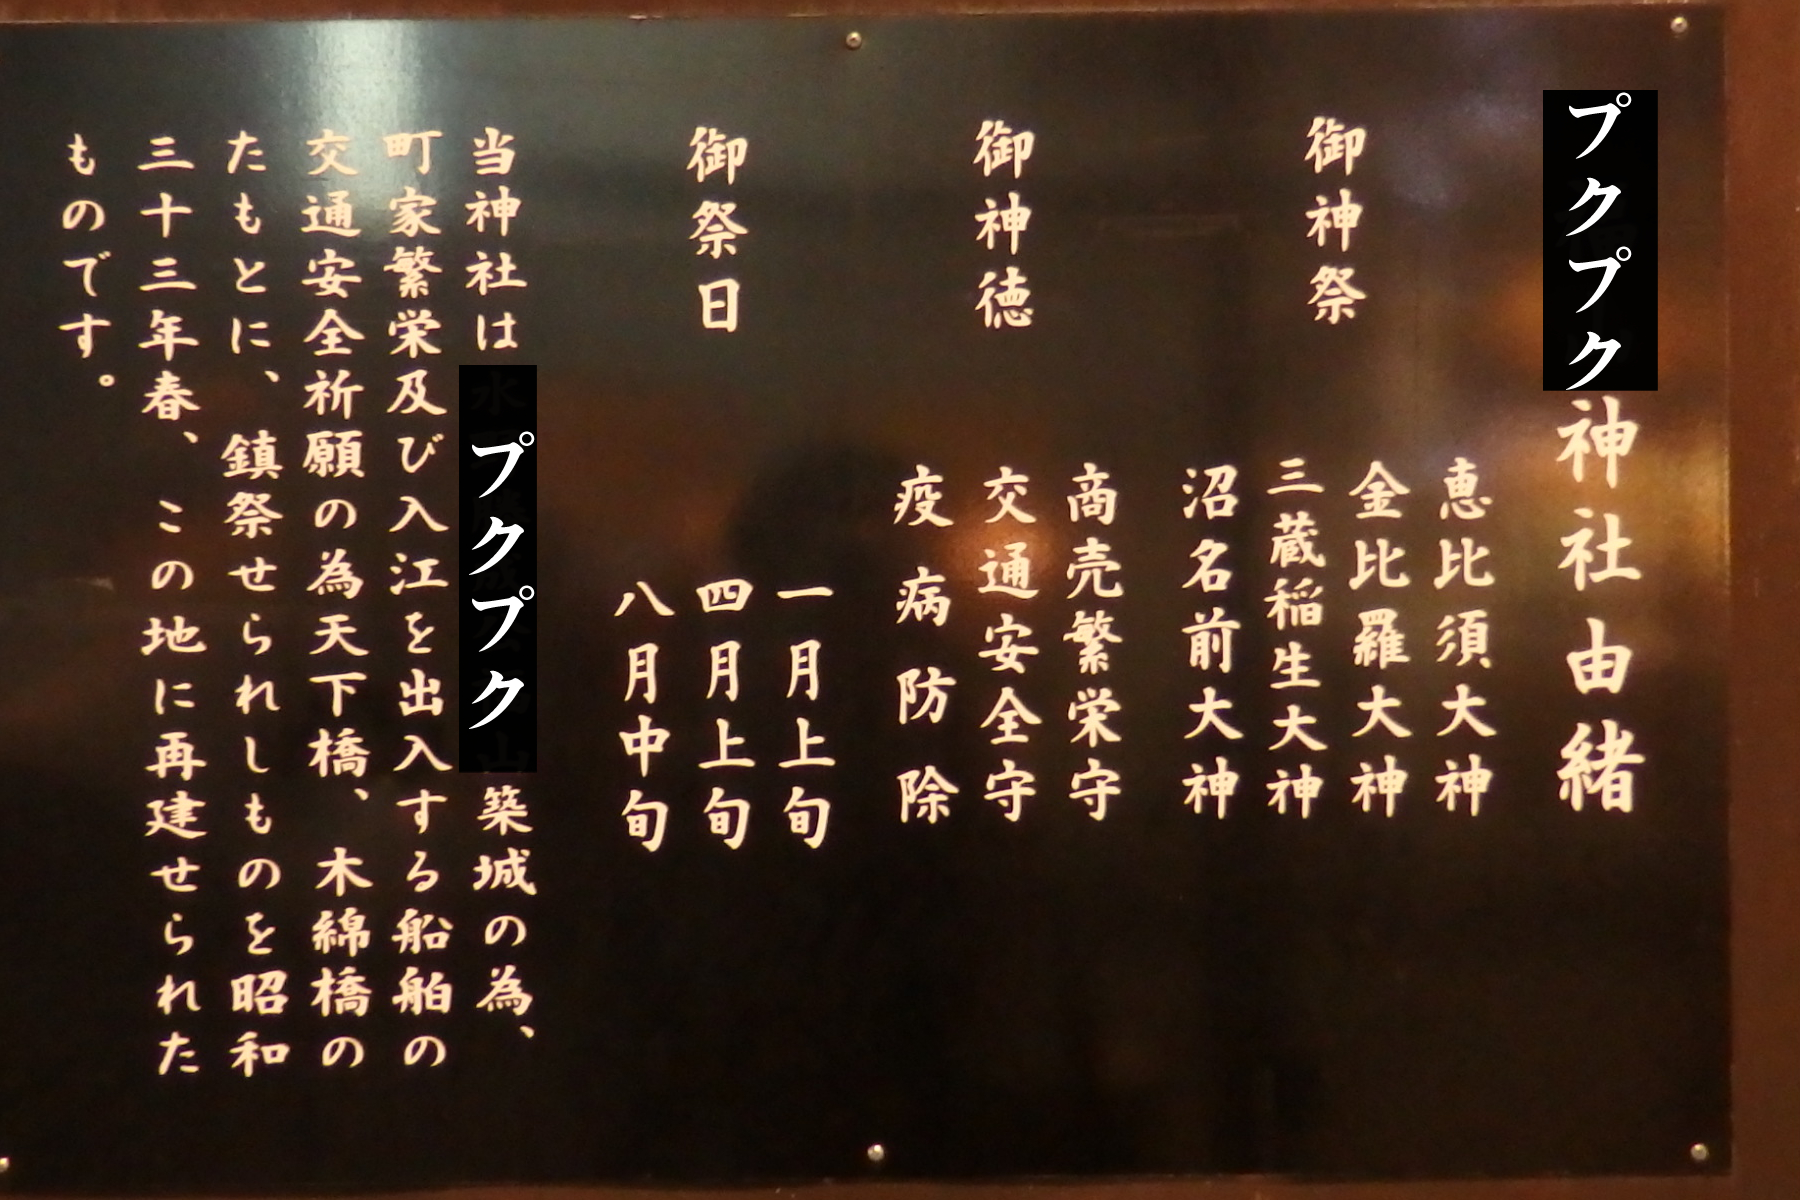 プクプク神社由緒
御神祭
恵比須大神
金比羅大神
三蔵稲生大神
沼名前大神
御神徳
商売繁栄守
交通安全守
疫病防除
御祭日
一月上旬
四月上旬
八月中旬
当神社はプクプク築城の為、
町家繁栄及び入江を出入する船舶の
交通安全祈願の為天下橋、木綿橋の
たもとに、鎮祭せられしものを昭和
三十三年春、この地に再建せられた
ものです。